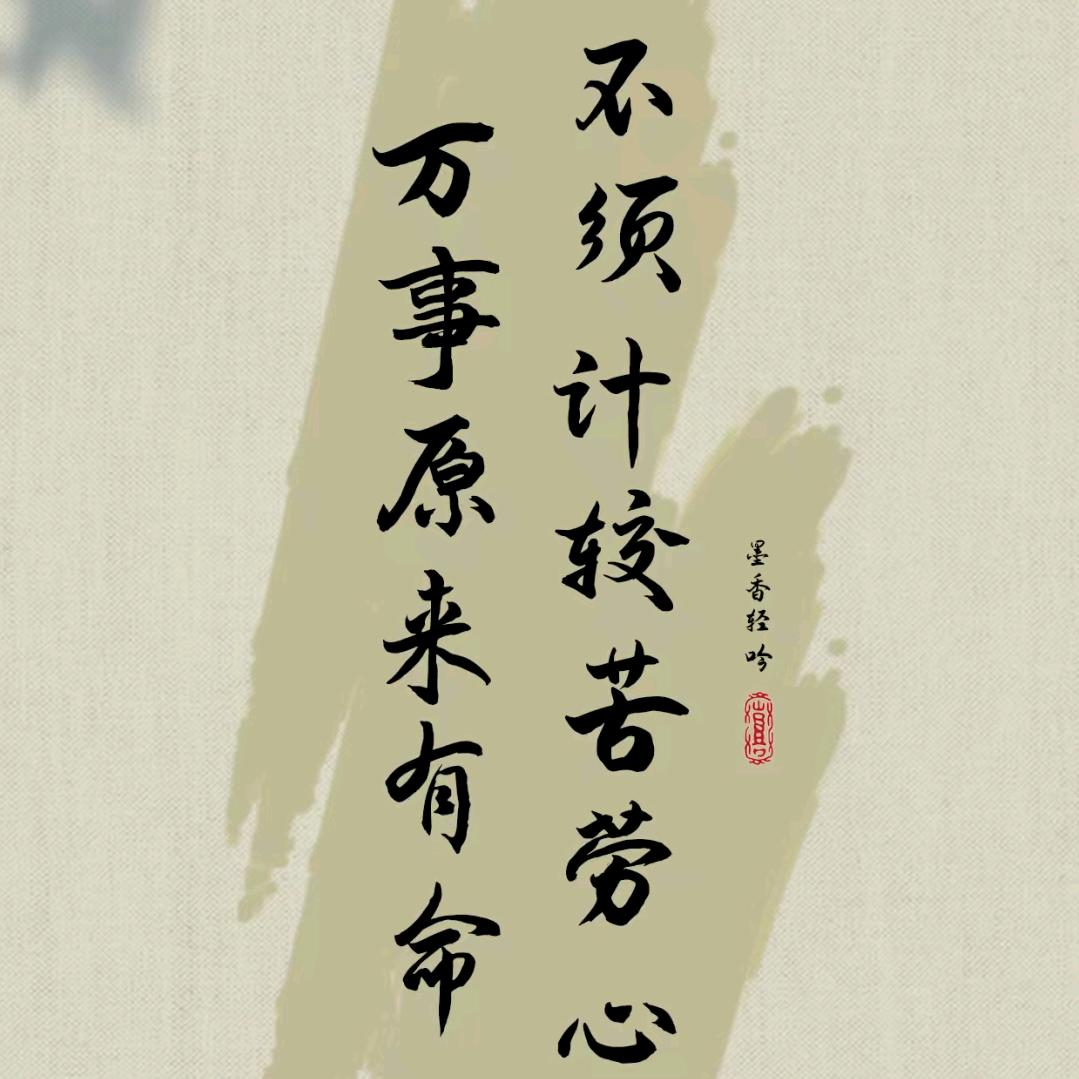 不须计较苦劳心
万事原来有命
墨香轻吟